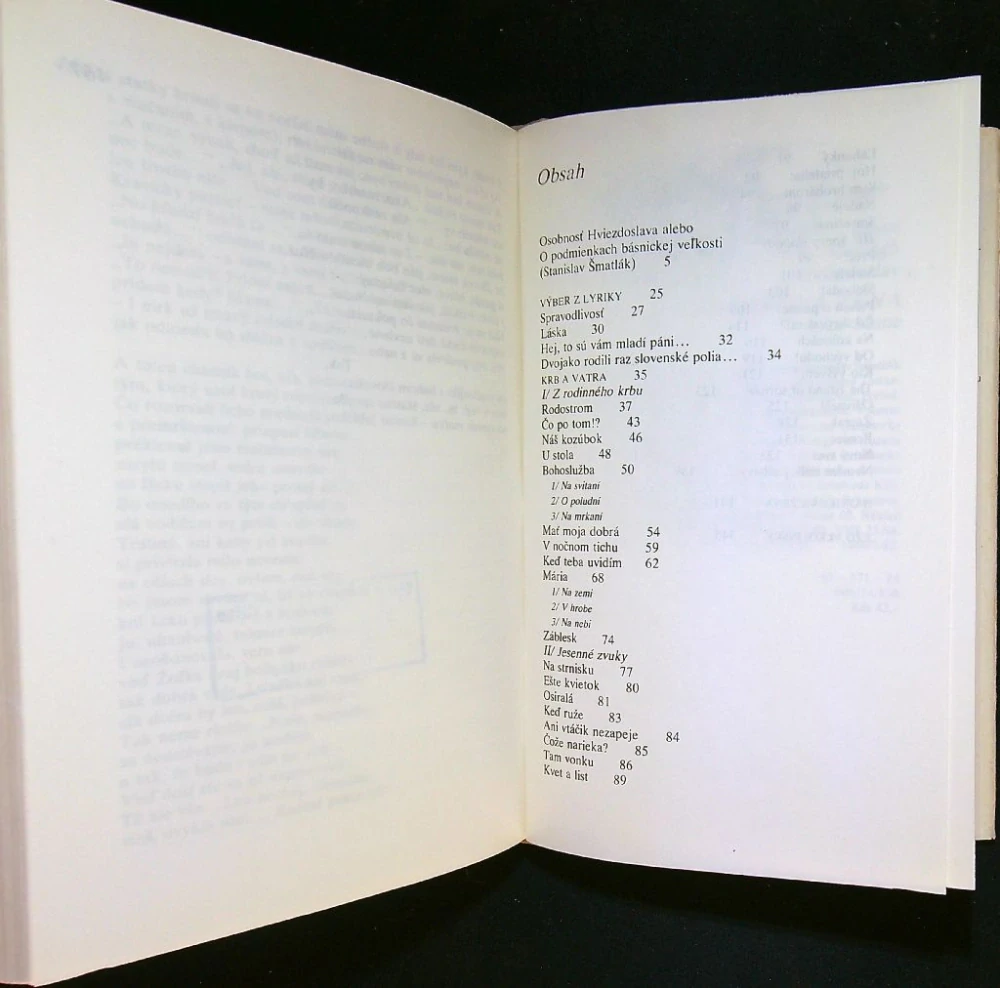 Obsah
Osobnosť Hviezdoslava alebo
O podmienkach básnickej veľkosti
(Stanislav Šmatlák) 5
VÝBER Z LYRIKY 25
Spravodlivosť 27
Láska 30
Hej, to sú vám mladí páni... 32
Dvojako rodili raz slovenské polia... 34
KRB A VATRA 35
I/ Z rodinného krbu
Rodostrom 37
Čo po tom!? 43
Náš kozúbok 46
U stola 48
Bohoslužba 50
1/ Na svitaní
2/ O poludní
3/ Na mrkaní
Mať moja dobrá 54
V nočnom tichu 59
Keď teba uvidím 62
Mária 68
1/ Na zemi
2/ V hrobe
3/ Na nebi
Záblesk 74
II/ Jesenné zvuky
Na strnisku 77
Ešte kvietok 80
Osiralá 81
Keď ruže 83
Ani vtáčik nezapeje 84
Čože narieka? 85
Tam vonku 86
Kvet a list 89